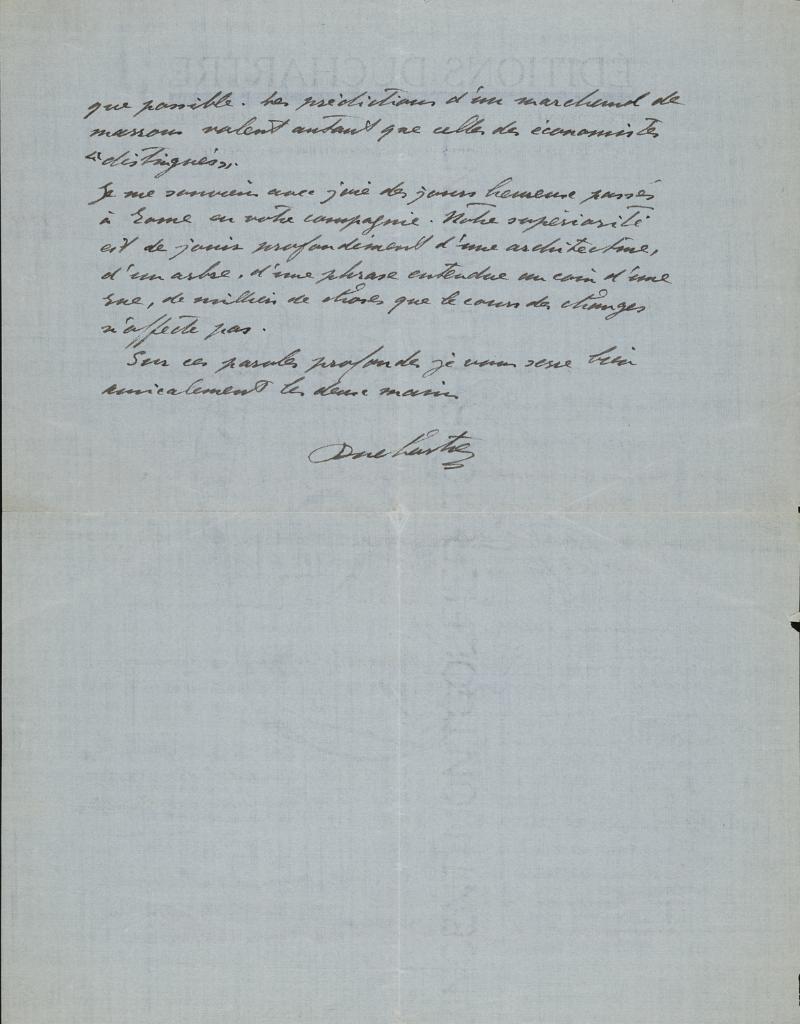 ÉDITIONS DUCHARTRE
que possible. Les prédictions d'un marchand de
marrons valent autant que celles des économistes
"distingués".
Je me souviens avec joie des jours heureux passés
à Rome en votre compagnie. Notre supériorité
est de jouir profondément d'une architecture,
d'un arbre, d'une phrase entendue au coin d'une
rue, de milliers de choses que le cours des changes
n'affecte pas.
Sur ces paroles profondes je vous serre bien
amicalement les deux mains
Duchartre